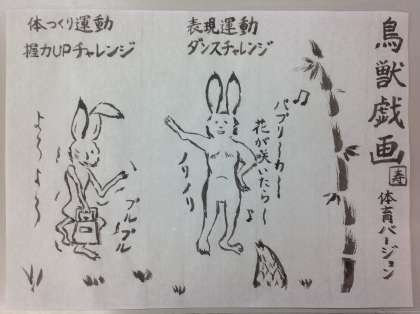 鳥獣戯画
寿
体育バージョン
表現運動
ダンスチャレンジ
パプリーカー
花が咲いたら〜
ノリノリ
体つくり運動
握力UPチャレンジ
よ〜よ〜
プルプル